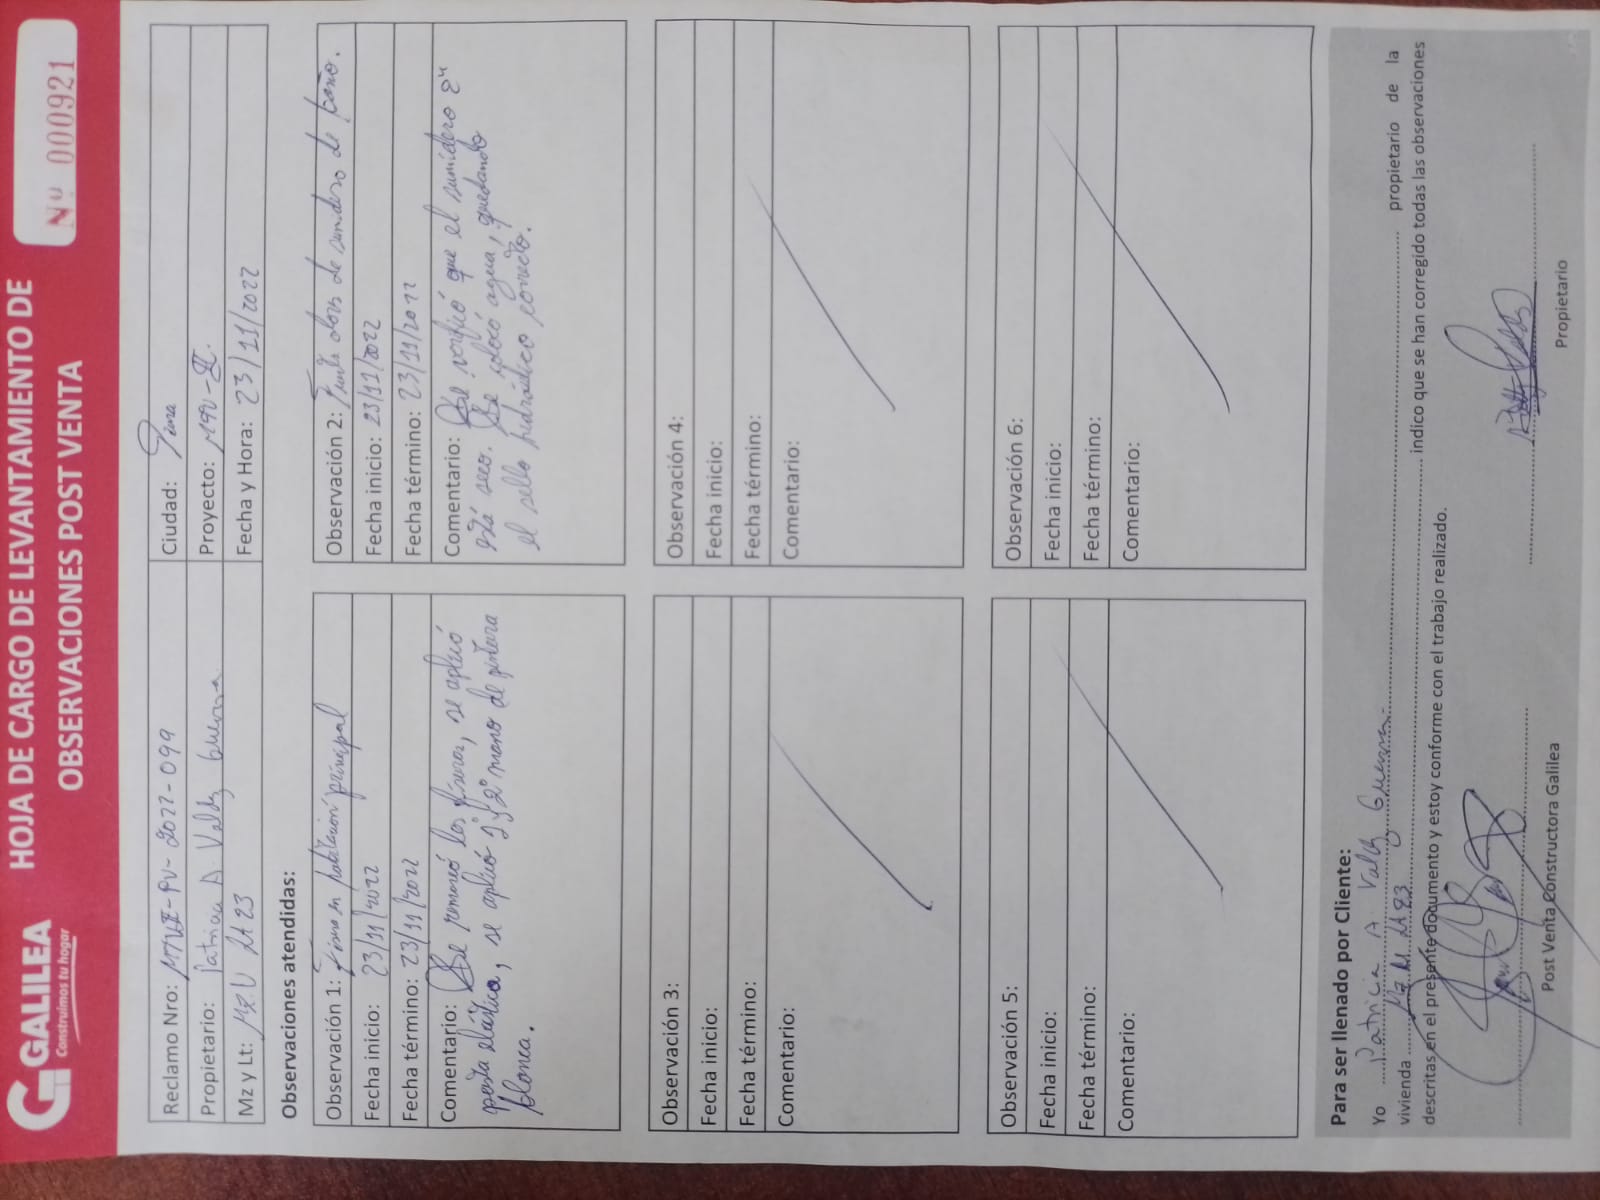 GALILEA
Construimos tu hogar
HOJA DE CARGO DE LEVANTAMIENTO DE
OBSERVACIONES POST VENTA
Nº 000921
Reclamo Nro: -PV-2022-099
Ciudad: Piura
Propietario: Patricia A. Valdez Guerra
Proyecto:
Mz y Lt: Mz. U Lt 23
Fecha y Hora: 23/11/2022
Observaciones atendidas:
Observación 1: Fisura en habitación principal
Fecha inicio: 23/11/2022
Fecha término: 23/11/2022
Comentario: Se removió las fisuras, se aplicó
pasta elástica, se aplicó 1° y 2° mano de pintura
blanca.
Observación 2: olores de sumidero de baño.
Fecha inicio: 23/11/2022
Fecha término: 23/11/2022
Comentario: Se verificó que el sumidero 2"
está seco. Se colocó agua, quedando
el sello hidráulico correcto.
Observación 3:
Fecha inicio:
Fecha término:
Comentario:
Observación 4:
Fecha inicio:
Fecha término:
Comentario:
Observación 5:
Fecha inicio:
Fecha término:
Comentario:
Observación 6:
Fecha inicio:
Fecha término:
Comentario:
Para ser llenado por Cliente:
Yo Patricia A Valdez Guerra propietario de la
vivienda Mz. U Lt 23 indico que se han corregido todas las observaciones
descritas en el presente documento y estoy conforme con el trabajo realizado.
Post Venta Constructora Galilea
Propietario